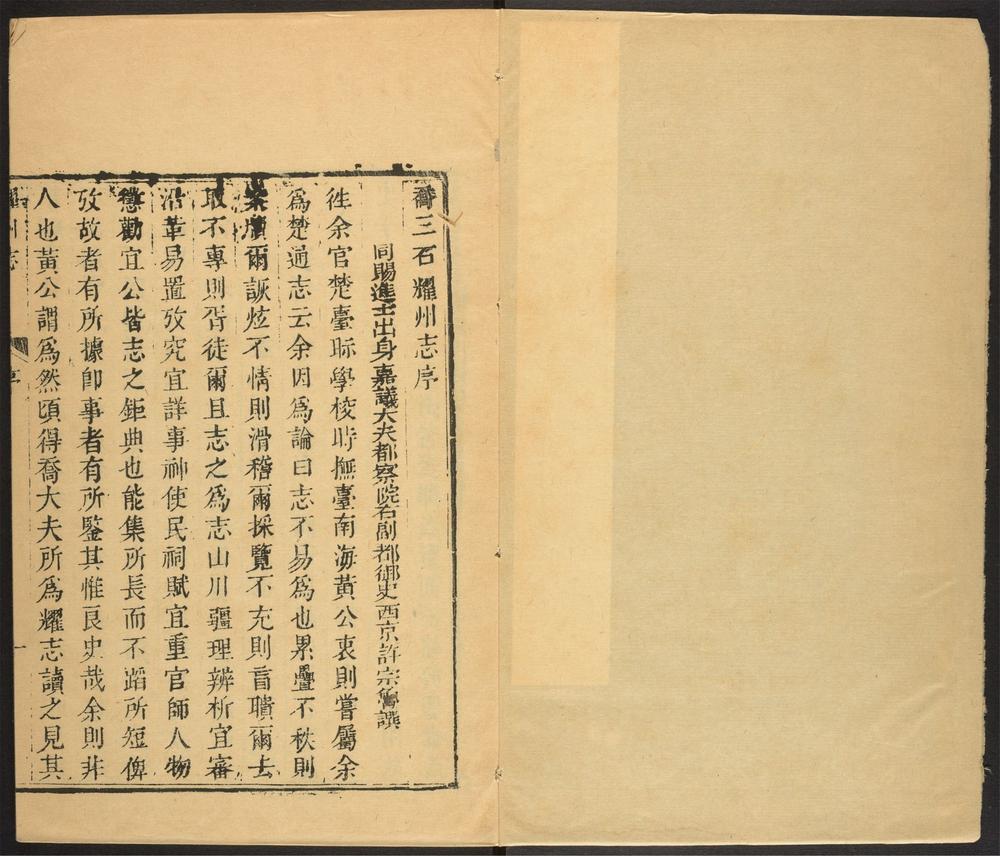 喬三石耀州志序
同賜進士出身嘉議大夫都察院右副都御史西京許宗魯譔
徃余官楚臺眎學校時撫臺南海黃公衷則嘗屬余
爲楚通志云余因爲論曰志不易爲也累疊不秩則
案牘爾誕炫不情則滑稽爾採覽不充則盲聵爾去
取不專則胥徒爾且志之爲志山川疆理辨析宜審
沿革易置攷究宜詳事神使民祠賦宜重官師人物
懲勸宜公皆志之鉅典也能集所長而不蹈所短俾
攷故者有所據卽事者有所鑒其惟良史哉余則非
人也黃公謂爲然頃得喬大夫所爲耀志讀之見其
耀州志
序
一